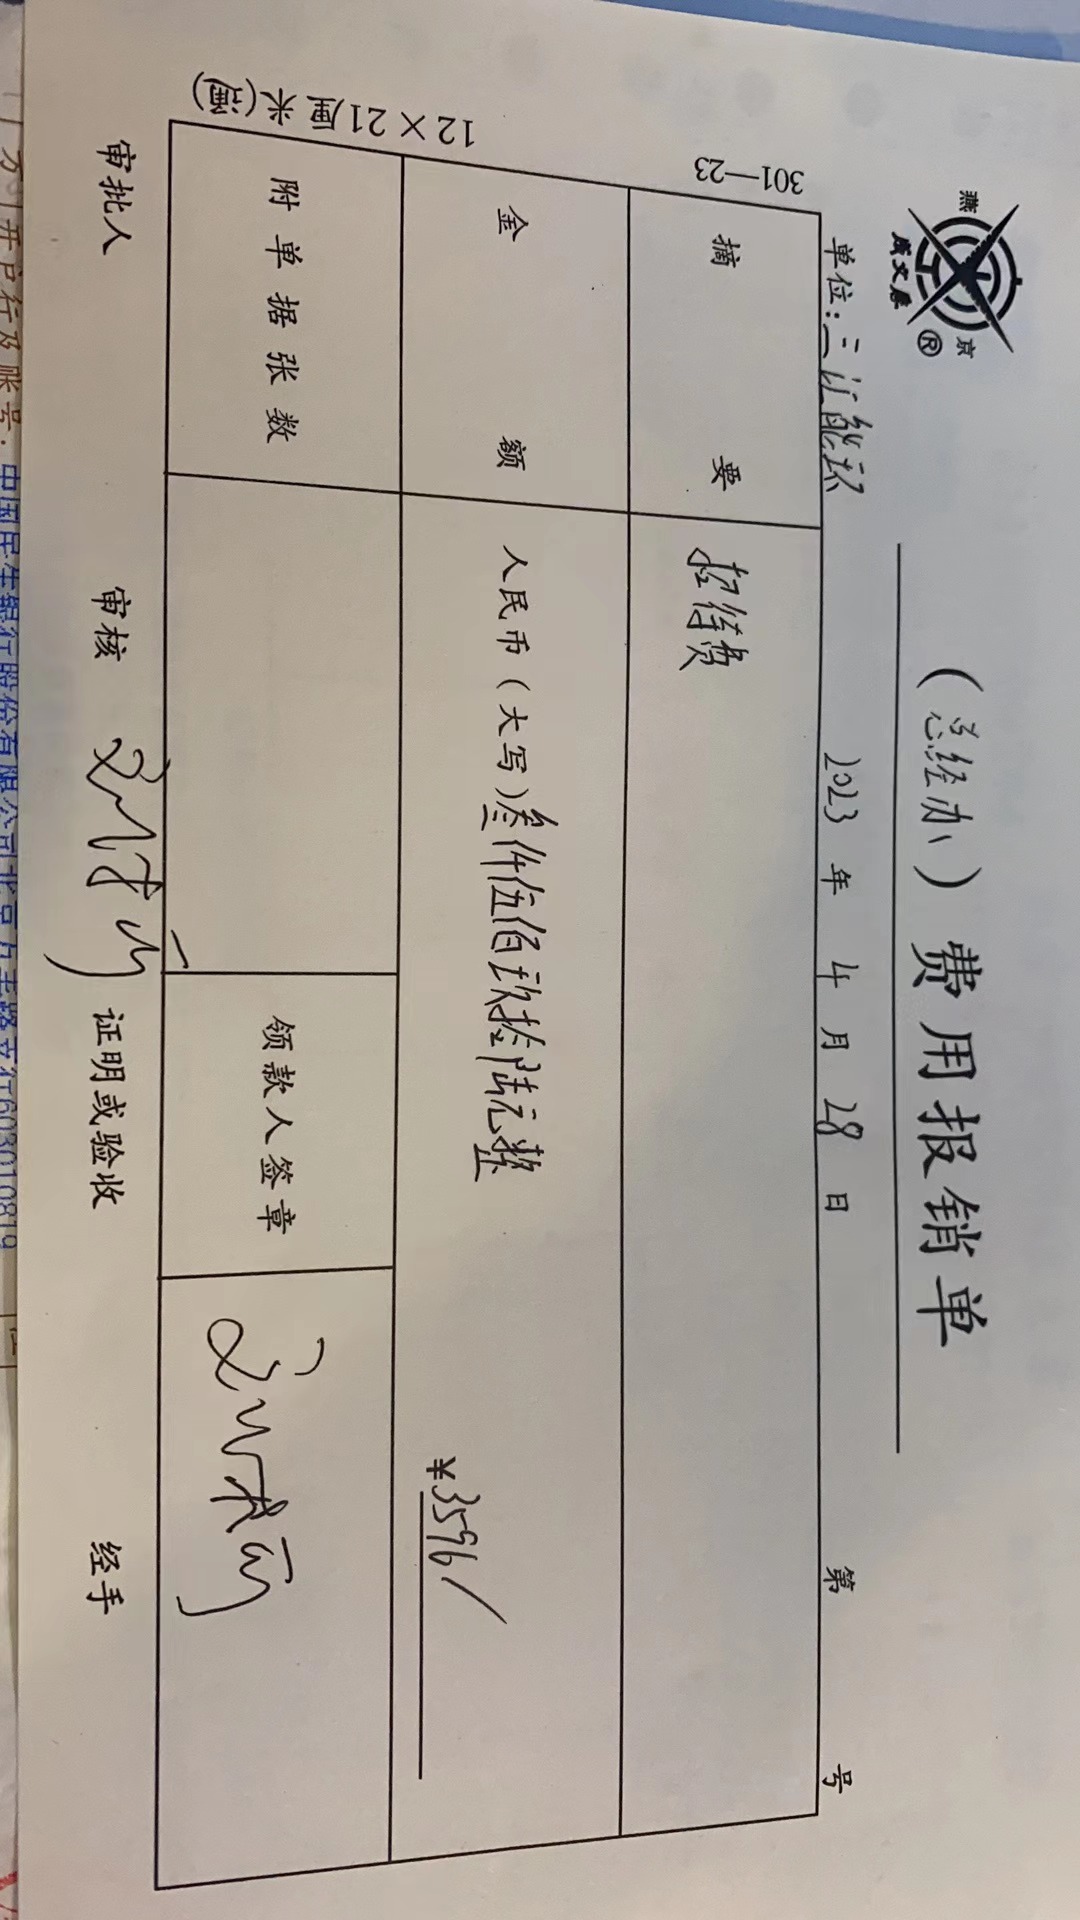 燕京
成文厚
®
（总经办）费用报销单
单位：三江能环 2023 年 4 月 28 日 第 号
301—23
摘要 招待费
金额 人民币（大写）叁仟伍佰玖拾陆元整
¥3596/
附单据张数 领款人签章
12×21厘米(通)
审批人 审核 证明或验收 经手
方）开户行及账号：中国民生银行股份有限公司北京